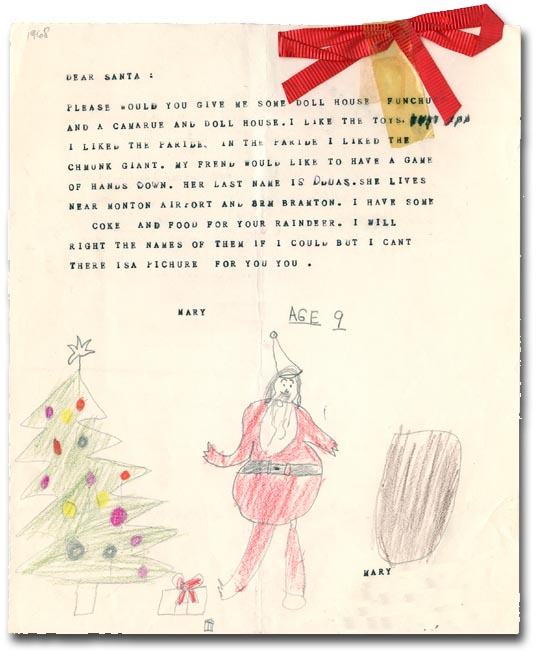 1968
DEAR SANTA :
PLEASE WOULD YOU GIVE ME SOME DOLL HOUSE FUNCHUE
AND A CAMARUE AND DOLL HOUSE. I LIKE THE TOYS.
I LIKED THE PARIDE. IN THE PARIDE I LIKED THE
CHMUNK GIANT. MY FREND WOULD LIKE TO HAVE A GAME
OF HANDS DOWN. HER LAST NAME IS DUUAS. SHE LIVES
NEAR MONTON AIRFORT AND BRM BRAMTON. I HAVE SOME
COKE AND FOOD FOR YOUR RAINDEER. I WILL
RIGHT THE NAMES OF THEM IF I COULD BUT I CANT
THERE ISA PICHURE FOR YOU YOU .
MARY AGE 9
MARY